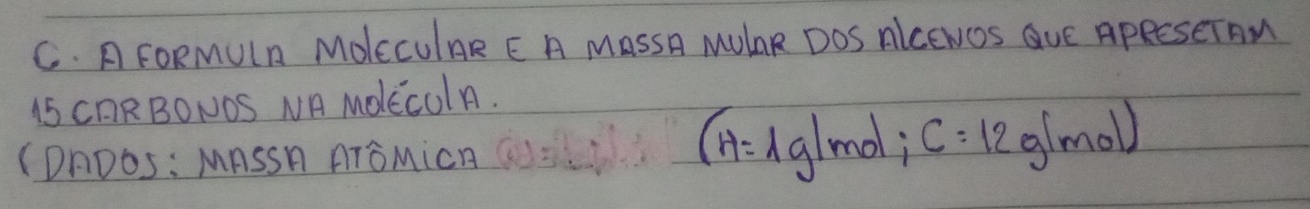 C. A FORMULA MOLECULAR E A MASSA MULAR DOS ALCENOS QUE APRESETAM
15 CARBONOS NA MOLÉCULA.
(DADOS: MASSA ATÔMICA (H=1g/mol; C=12g/mol)